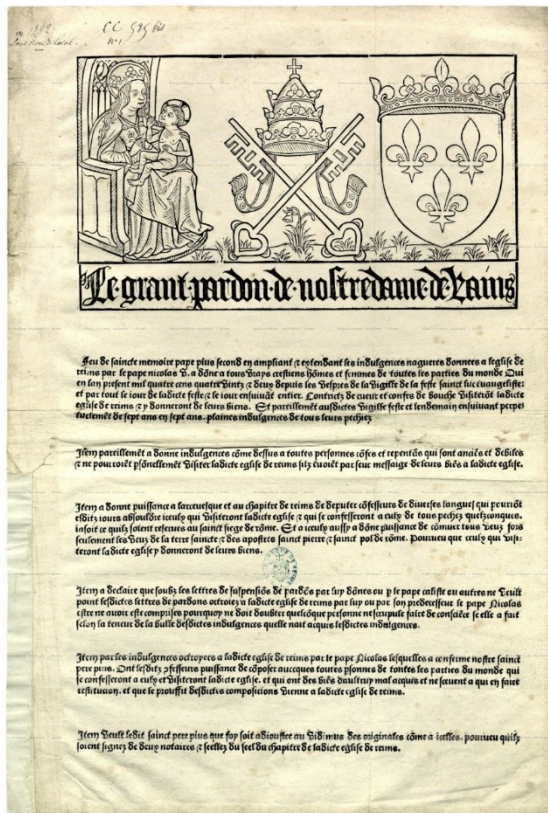 CC 595 bis
n° 1.
Le grant pardon de nostredame de Rains
Feu de saincte memoire pape pius second en ampliant ⁊ extendant les indulgences naguetes donnees a leglise de
reims par le pape nicolas V. a dōne a tous vrays crestiens hōmes et femmes de toutes les parties du monde Qui
en lan present mil quatre cens quatre vintz ⁊ deux depuis les vespres de la vigille de la feste sainct luc euuangeliste:
et par tout le iour de ladicte feste ⁊ le iour ensuiuāt entier. Contrictz de cueur et confes de bouche visiterōt ladicte
eglise de reims ⁊ y donneront de leurs biens. Et pareillemēt ausdictes vigille feste et lendemain ensuiuant perpe
tuelemēt de sept ans en sept ans. plaines indulgences de tous leurs pechiez
Item pareillemēt a donne indulgences cōme dessus a toutes personnes cōfes et repentās qui sont anciēs et debiles
⁊ ne pourroiēt psōnellemēt visiter ladicte eglise de reims silz ēuoiēt par seur messaige de leurs biēs a ladicte eglise.
Item a donne puissance a larceuesque et au chapitre de reims de deputer cōfesseurs de diuerses langues qui pourrōt
esditz iours absouldre iceulx qui visiteront ladicte eglise ⁊ qui se confesseront a eulx de tous pechez quelzconques.
iasoit ce quilz soient reseruez au sainct siege de rōme. Et a iceulx aussy a dōne puissance de cōmuer tous veuz fors
seulement les veuz de la terre saincte ⁊ des apostres sainct pierre ⁊ sainct pol de rōme. Pourueu que ceulx qui visi
teront ladicte eglise y donneront de leurs biens.
Item a declaire que soubz les lettres de suspensiōs de pardōs par luy dōnees ou p le pape calixte ou autres ne veult
point lesdictes lettres de pardons octroiez a ladicte eglise de reims par luy ou par son predecesseur le pape Nicolas
estre ne auoir este comprises pourquoy ne doit doubter quelcōque personne ne scrupule faire de consciēce se elle a fait
selon la teneur de la bulle desdictes indulgences quelle nait acquis lesdictes indulgences.
Item par les indulgences octroyees a ladicte eglise de reims par le pape Nicolas lesquelles a conferme nostre sainct
pere pius. Ont lesditz pfesseurs puissance de cōposer auecques toutes psonnes de toutes les parties du monde qui
se confesseront a eulx et visiteront ladicte eglise. et qui ont des biēs daultruy mal acquis et ne sceuent a qui en faire
restitucion. et que le prouffit desdictes composicions vienne a ladicte eglise de reims.
Item veult ledit sainct pere pius que foy soit adioustee au vidimus des originales cōme a icelles. pourueu quilz
soient signez de deux notaires ⁊ seellez du seel du chapitre de ladicte eglise de reims.